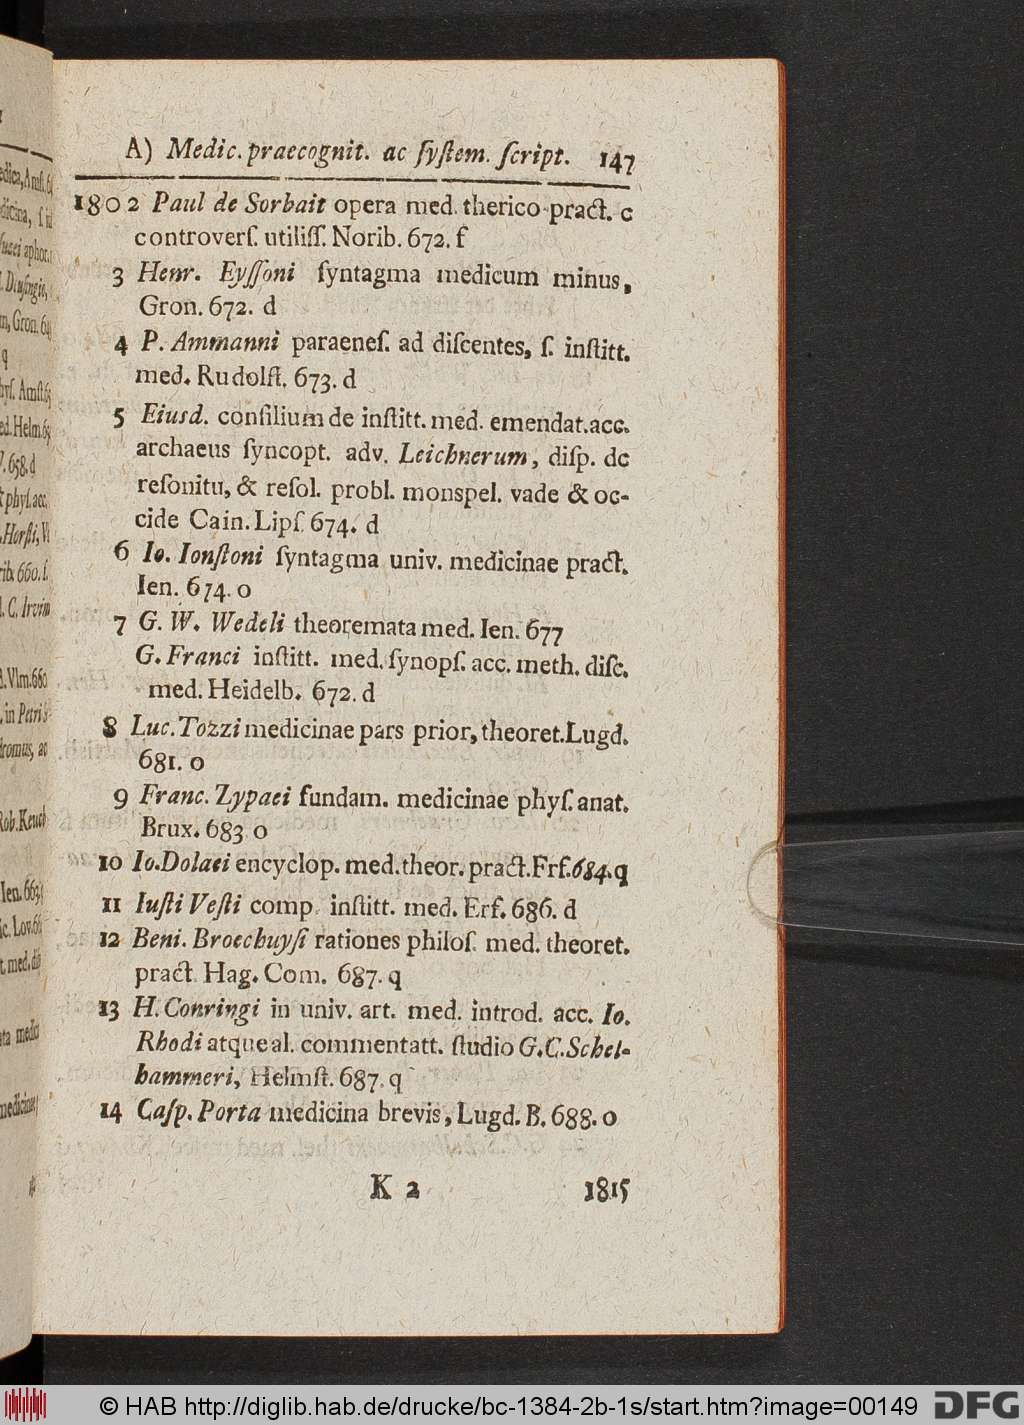 A) Medic. praecognit. ac ſyſtem. ſcript. 147
1802 Paul de Sorbait opera med. therico-pract. c
controverſ. utiliſſ. Norib. 672. f
3 Henr. Eyſſoni ſyntagma medicum minus,
Gron. 672. d
4 P. Ammanni paraeneſ. ad diſcentes, ſ. inſtitt.
med. Rudolſt. 673. d
5 Eiusd. conſilium de inſtitt. med. emendat. acc.
archaeus ſyncopt. adv. Leichnerum, diſp. de
reſonitu, & reſol. probl. monspel. vade & oc-
cide Cain. Lipſ 674. d
6 Io. Ionſtoni ſyntagma univ. medicinae pract.
Ien. 674. o
7 G. W. Wedeli theoremata med. Ien. 677
G. Franci inſtitt. med. ſynopſ. acc. meth. diſc.
med. Heidelb. 672. d
8 Luc. Tozzi medicinae pars prior, theoret. Lugd.
681. o
9 Franc. Zypaei fundam. medicinae phyſ. anat.
Brux. 683 o
10 Io. Dolaei encyclop. med. theor. pract. Frf. 684. q
11 Iuſti Veſti comp. inſtitt. med. Erf. 686. d
12 Beni. Broechuyſi rationes philoſ. med. theoret.
pract. Hag. Com. 687. q
13 H. Conringi in univ. art. med. introd. acc. Io.
Rhodi atque al. commentatt. ſtudio G. C. Schel-
hammeri, Helmſt. 687. q
14 Caſp. Porta medicina brevis, Lugd. B. 688. o
K 2 1815
© HAB http://diglib.hab.de/drucke/bc-1384-2b-1s/start.htm?image=00149 DFG